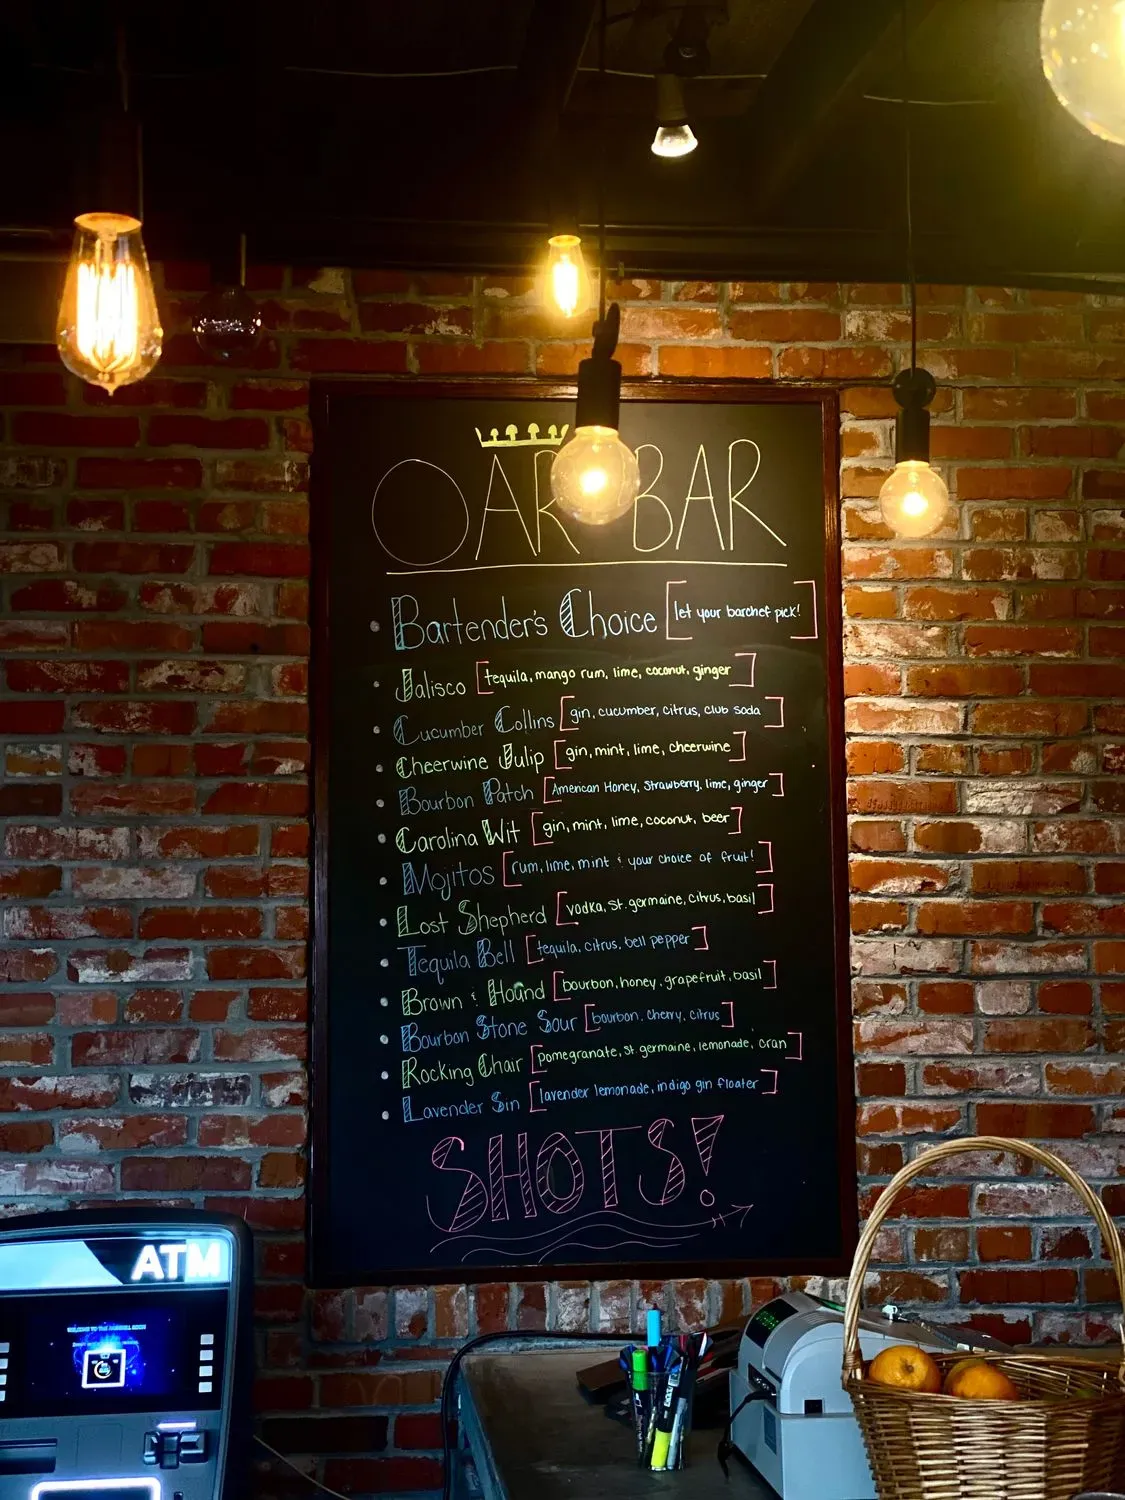 OAR BAR
Bartender's Choice [let your barchef pick!]
Jalisco [tequila, mango rum, lime, coconut, ginger]
Cucumber Collins [gin, cucumber, citrus, club soda]
Cheerwine Julip [gin, mint, lime, cheerwine]
Bourbon Patch [American Honey, Strawberry, lime, ginger]
Carolina Wit [gin, mint, lime, coconut, beer]
Mojitos [rum, lime, mint & your choice of fruit!]
Lost Shepherd [vodka, St. germaine, citrus, basil]
Tequila Bell [tequila, citrus, bell pepper]
Brown & Hound [bourbon, honey, grapefruit, basil]
Bourbon Stone Sour [bourbon, cherry, citrus]
Rocking Chair [pomegranate, st germaine, lemonade, cran]
Lavender Sin [lavender lemonade, indigo gin floater]
SHOTS!
ATM